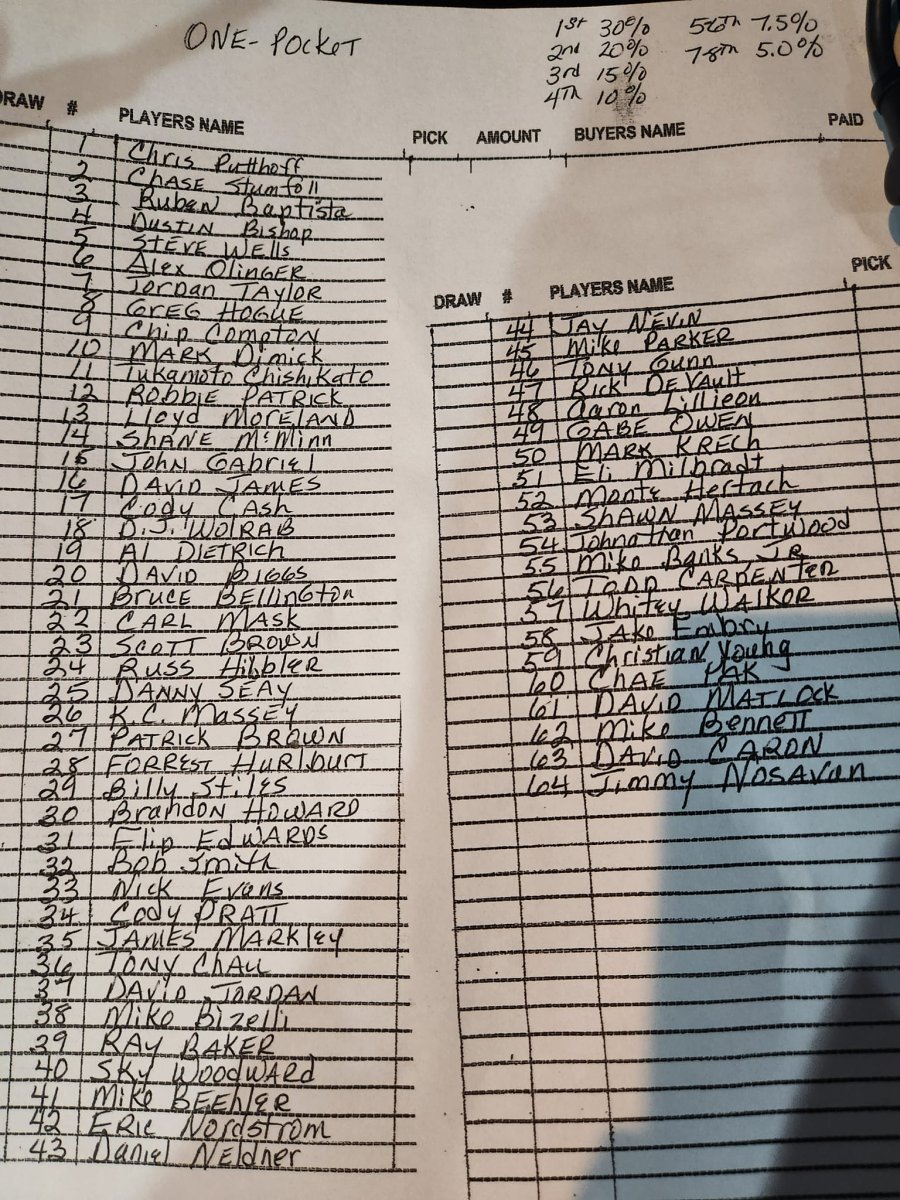 ONE-POCKET
1st 30% 5-6th 7.5%
2nd 20% 7-8th 5.0%
3rd 15%
4th 10%
DRAW # PLAYERS NAME PICK AMOUNT BUYERS NAME PAID
1 Chris Putthoff
2 CHASE Stumfoll
3 Ruben Baptista
4 DUSTIN Bishop
5 STEVE WELLS
6 Alex OLINGER
7 JORDAN TAYLOR
8 GREG HOGUE
9 Chip Compton
10 MARK Dimick
11 Tukamoto Chishikato
12 ROBBIE PATRICK
13 Lloyd MORELAND
14 SHANE McMinn
15 John GABRIEL
16 DAVID JAMES
17 Cody CASH
18 D.J. WOLRAB
19 Al DIETRICH
20 DAVID BIGGS
21 BRUCE BELLINGTON
22 CARL MASK
23 SCOTT BROWN
24 RUSS Hibbler
25 DANNY SEAY
26 K.C. MASSEY
27 PATRICK BROWN
28 FORREST HURLBURT
29 Billy Stiles
30 Brandon HOWARD
31 Flip EDWARDS
32 Bob Smith
33 Nick Evans
34 Cody PRATT
35 JAMES MARKLEY
36 TONY CHAU
37 DAVID JORDAN
38 Mike Bizelli
39 RAY BAKER
40 SKY WOODWARD
41 Mike BEEHLER
42 ERIC Nordstrom
43 Daniel NELDNER
DRAW # PLAYERS NAME PICK
44 JAY NEVIN
45 Mike PARKER
46 TONY Gunn
47 RICK DEVAULT
48 Aaron Lillieon
49 GABE OWEN
50 MARK KRECH
51 Eli Milbradt
52 Monte Hertach
53 SHAWN MASSEY
54 Johnathan Portwood
55 Mike Banks JR
56 TODD CARPENTER
57 Whitey WALKER
58 JAKE Embry
59 Christian Young
60 CHAE PAK
61 DAVID MATLOCK
62 Mike Bennett
63 DAVID CARON
64 Jimmy NOSAVAN